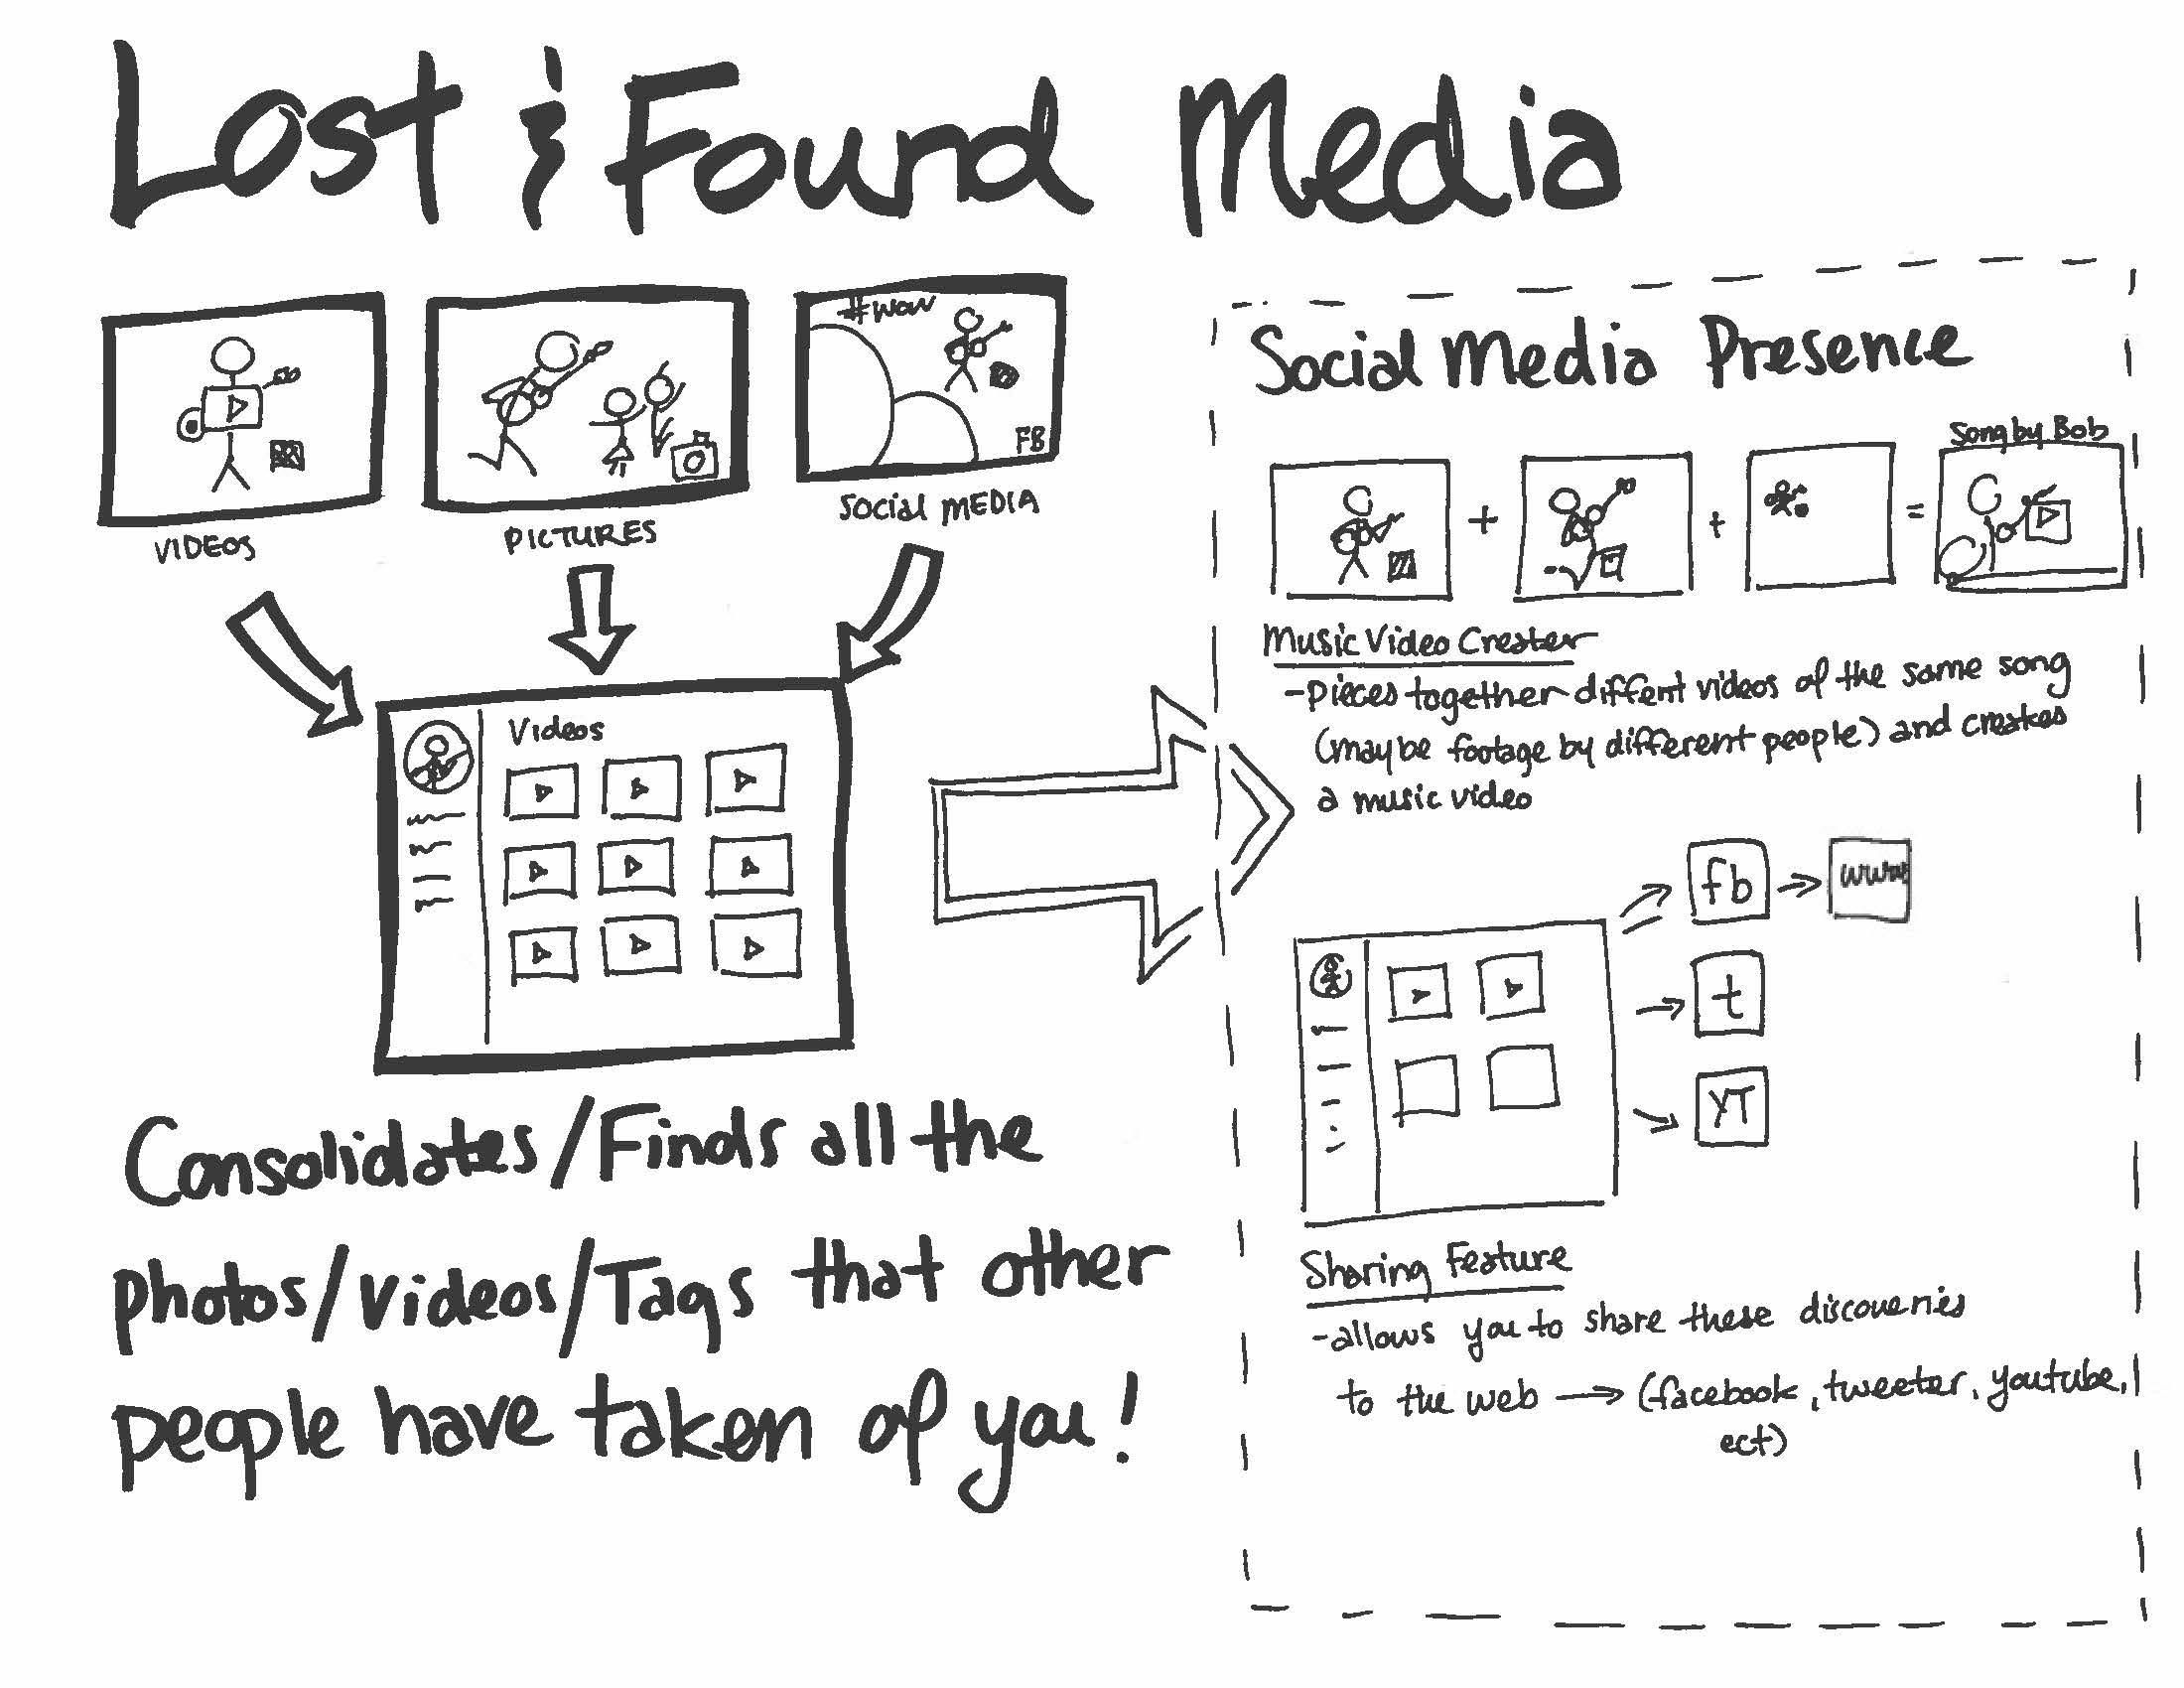 Lost & Found Media
#wow
FB
VIDEOS
PICTURES
SOCIAL MEDIA
Videos
Consolidates/Finds all the
photos/videos/Tags that other
people have taken of you!
Social Media Presence
Song by Bob
+ + =
Music Video Creater
-pieces together diffent videos of the same song
(maybe footage by different people) and creates
a music video
fb
t
YT
Sharing Feature
-allows you to share these discoveries
to the web → (facebook, tweeter, youtube,
ect)